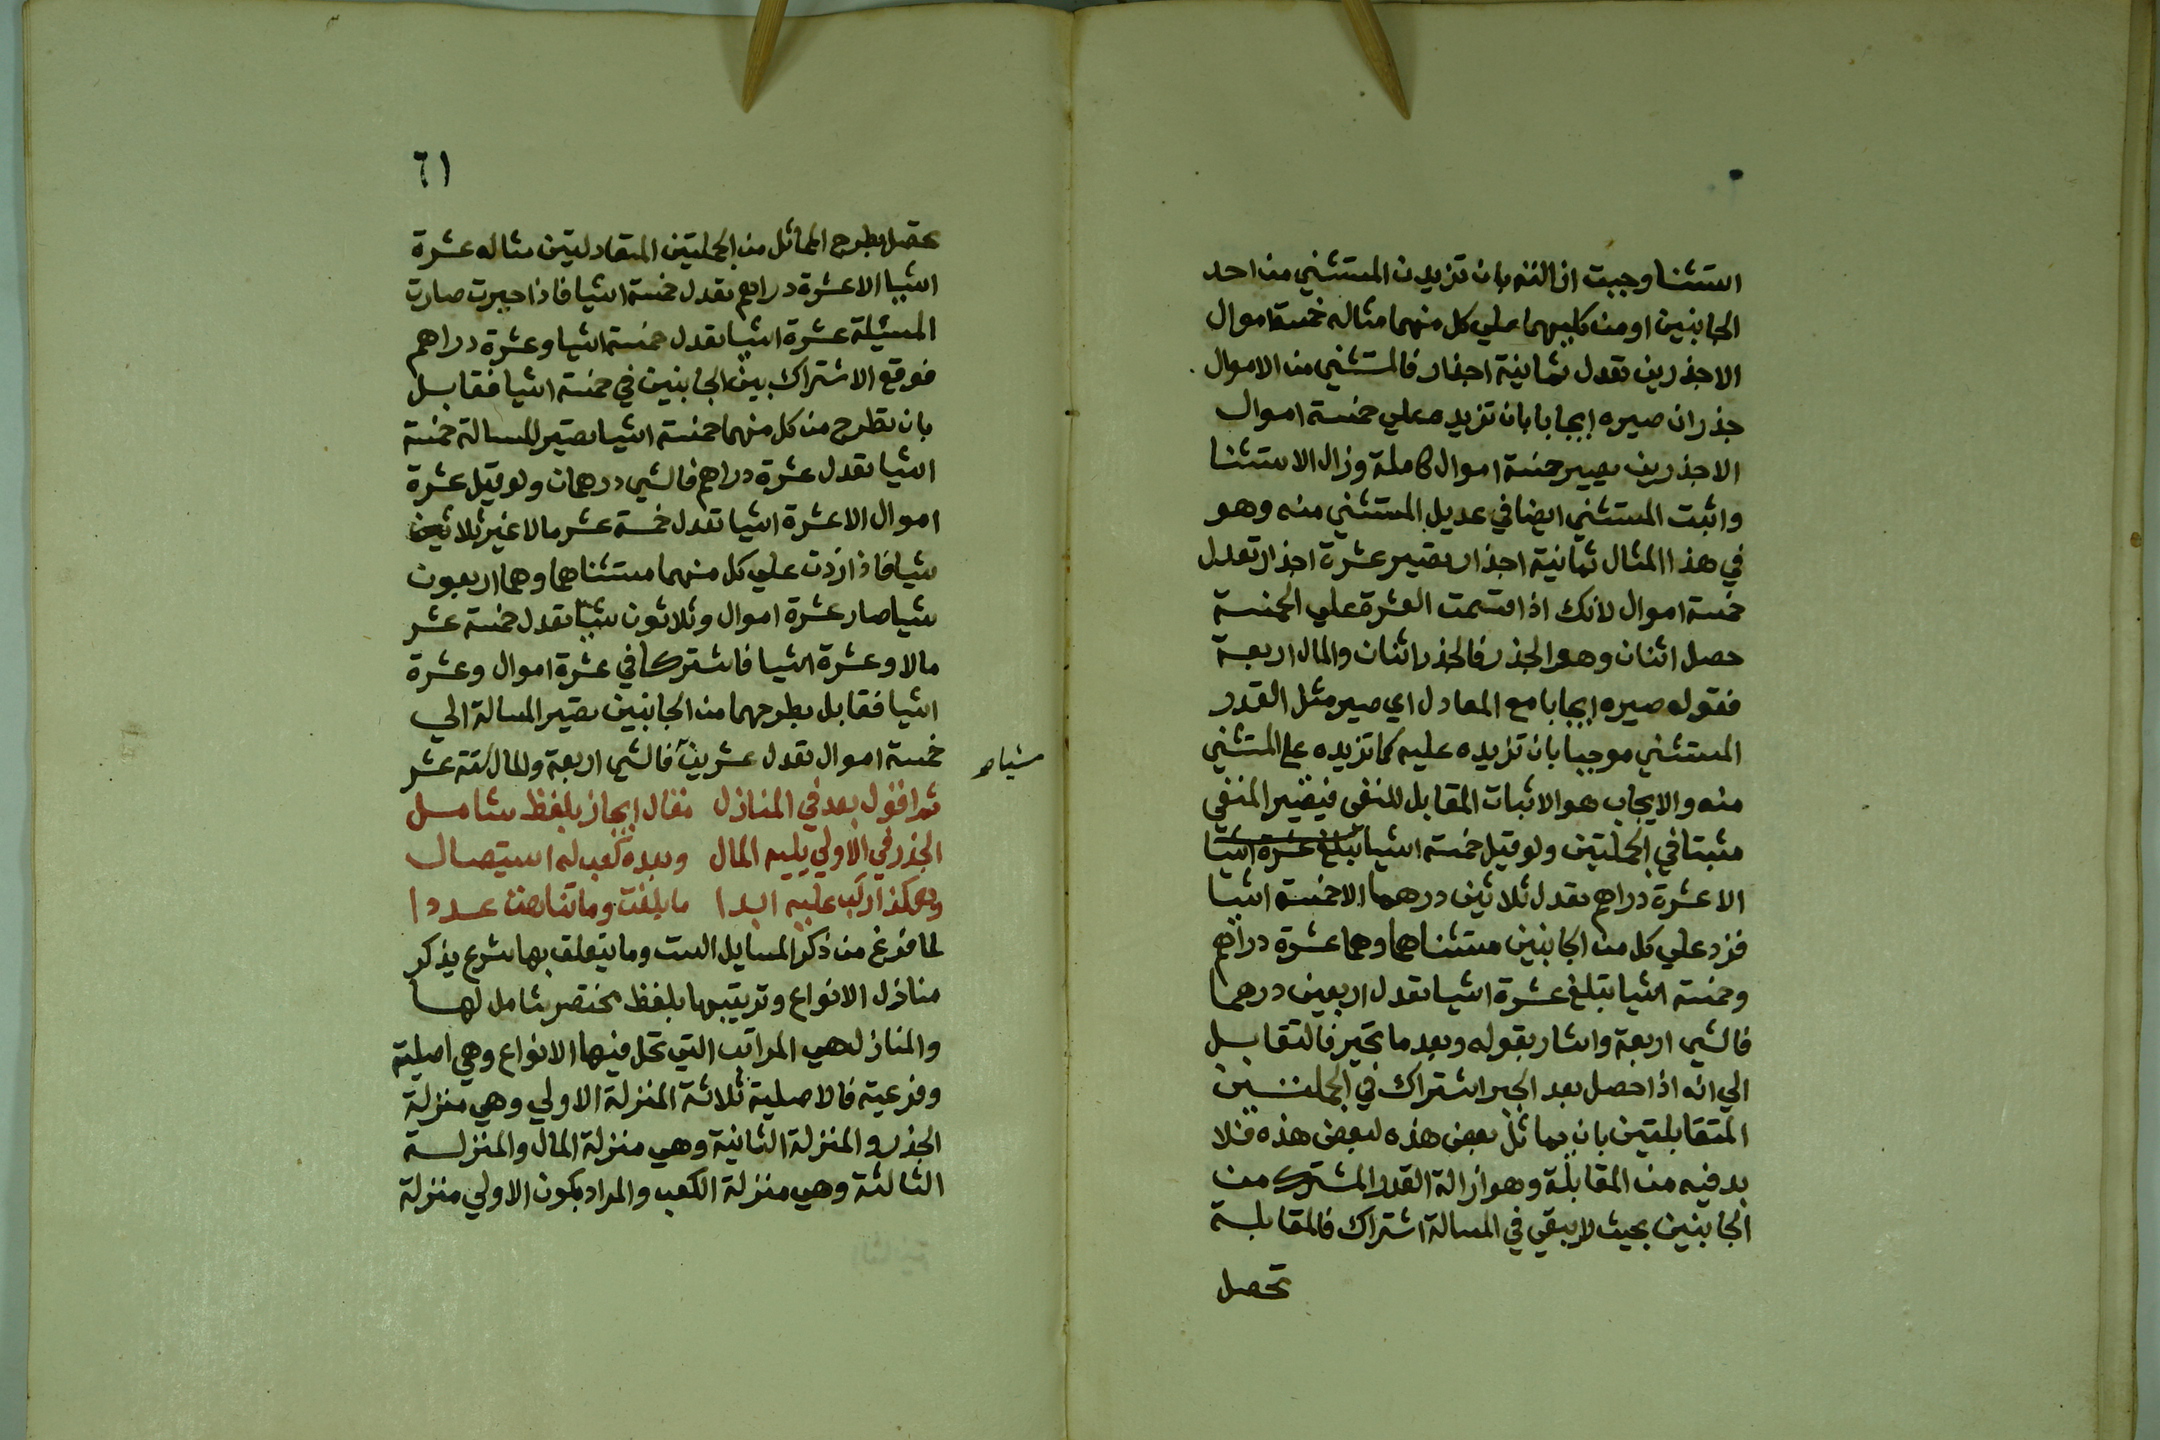 استثنا وجبت ازالته بان تزيدن المستثني من احد
الجانبين او من كليهما علي كل منهما مثاله خمسة اموال
الا جذرين تعدل ثمانية اجذار فالمستثني من الاموال
جذران صيره ايجابا بان تزيده علي خمسة اموال
الا جذرين يصير خمسة اموال كاملة وزال الاستثنا
واثبت المستثني ايضا في عديل المستثني منه وهو
في هذا المثال ثمانية اجذار يصير عشرة اجذار تعدل
خمسة اموال لانك اذا قسمت العشرة علي الخمسة
حصل اثنان وهو الجذر فالجذر اثنان والمال اربعة
فقوله صيره ايجابا مع المعادل اي صير مثل القدر
المستثني موجبا بان تزيده عليه كما تزيده علي المستثني
منه والايجاب هو الاثبات المقابل للنفي فيصير المنفي
مثبتا في الجملتين ولو قيل خمسة اشيا تبلغ عشرة اشيا
الا عشرة دراهم تعدل ثلاثين درهما الا خمسة اشيا
فزد علي كل من الجانبين مستثناهما وهما عشرة دراهم
وخمسة اشيا تبلغ عشرة اشيا تعدل اربعين درهما
فالشي اربعة واشار بقوله وبعد ما تجبر فالتقابل
الي انه اذا حصل بعد الجبر اشتراك في الجملتين
المتقابلتين بان يماثل بعض هذه لبعض هذه فلا
بد فيه من المقابلة وهو ازالة القدر المشترك من
الجانبين بحيث لا يبقي في المسالة اشتراك فالمقابلة
تحصل
٦١
تحصل بطرح المماثل من الجملتين المتعادلتين مثاله عشرة
اشيا الا عشرة دراهم تعدل خمسة اشيا فاذا جبرت صارت
المسئلة عشرة اشيا تعدل خمسة اشيا وعشرة دراهم
فوقع الاشتراك بين الجانبين في خمسة اشيا فقابل
بان تطرح من كل منهما خمسة اشيا تصير المسالة خمسة
اشيا تعدل عشرة دراهم فالشي درهمان ولو قيل عشرة
اموال الا عشرة اشيا تعدل خمسة عشر مالا غير ثلاثين
شيا فاذا زدت علي كل منهما مستثناهما وهما اربعون
شيا صار عشرة اموال وثلاثون شيا تعدل خمسة عشر
مالا وعشرة اشيا فاشتركا في عشرة اموال وعشرة
اشيا فقابل بطرحهما من الجانبين تصير المسالة الي
خمسة اموال تعدل عشرين فالشي اربعة والمال ستة عشر
شيا صح
ثم اقول بعد في المنازل مقال ايجاز بلفظ شامل
الجذر في الاولي يليه المال وبعده كعب له استيصال
وهكذا اركب عليه ابدا ما بلغت وما تناهت عددا
لما فرغ من ذكر المسايل الست وما يتعلق بها شرع يذكر
منازل الانواع وترتيبها بلفظ مختصر شامل لها
والمنازل هي المراتب التي تحل فيها الانواع وهي اصلية
وفرعية فالاصلية ثلاثة المنزلة الاولي وهي منزلة
الجذر والمنزلة الثانية وهي منزلة المال والمنزلة
الثالثة وهي منزلة الكعب والمراد بكون الاولي منزلة